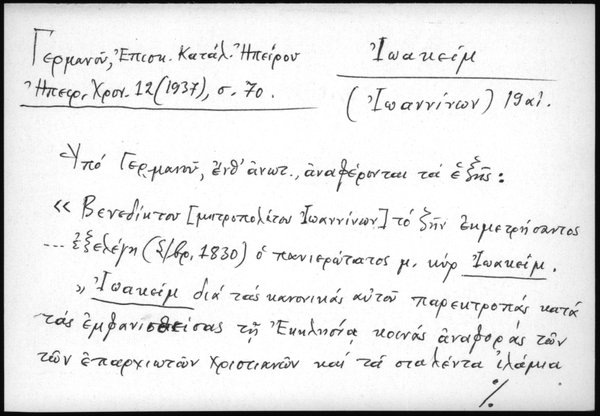 Γερμανοῦ, Ἐπισκ. Κατάλ. Ἠπείρου
Ἠπειρ. Χρον. 12 (1937), σ. 70.
Ἰωακείμ
(Ἰωαννίνων) 19 αἰ.
Ὑπό Γερμανοῦ, ἔνθ' ἀνωτ., ἀναφέρονται τά ἑξῆς:
« Βενεδίκτου [μητροπολίτου Ἰωαννίνων] τό ζῆν ἐκμετρήσαντος
... ἐξελέγη (Σ/βρ. 1830) ὁ πανιερώτατος μ. κύρ Ἰωακείμ.
" Ἰωακείμ διά τάς κανονικάς αὐτοῦ παρεκτροπάς κατά
τάς ἐμφανισθείσας τῇ Ἐκκλησίᾳ κοινάς ἀναφοράς τῶν
τῶν ἐπαρχιωτῶν Χριστιανῶν καί τά σταλέντα ἰλάμια
./.